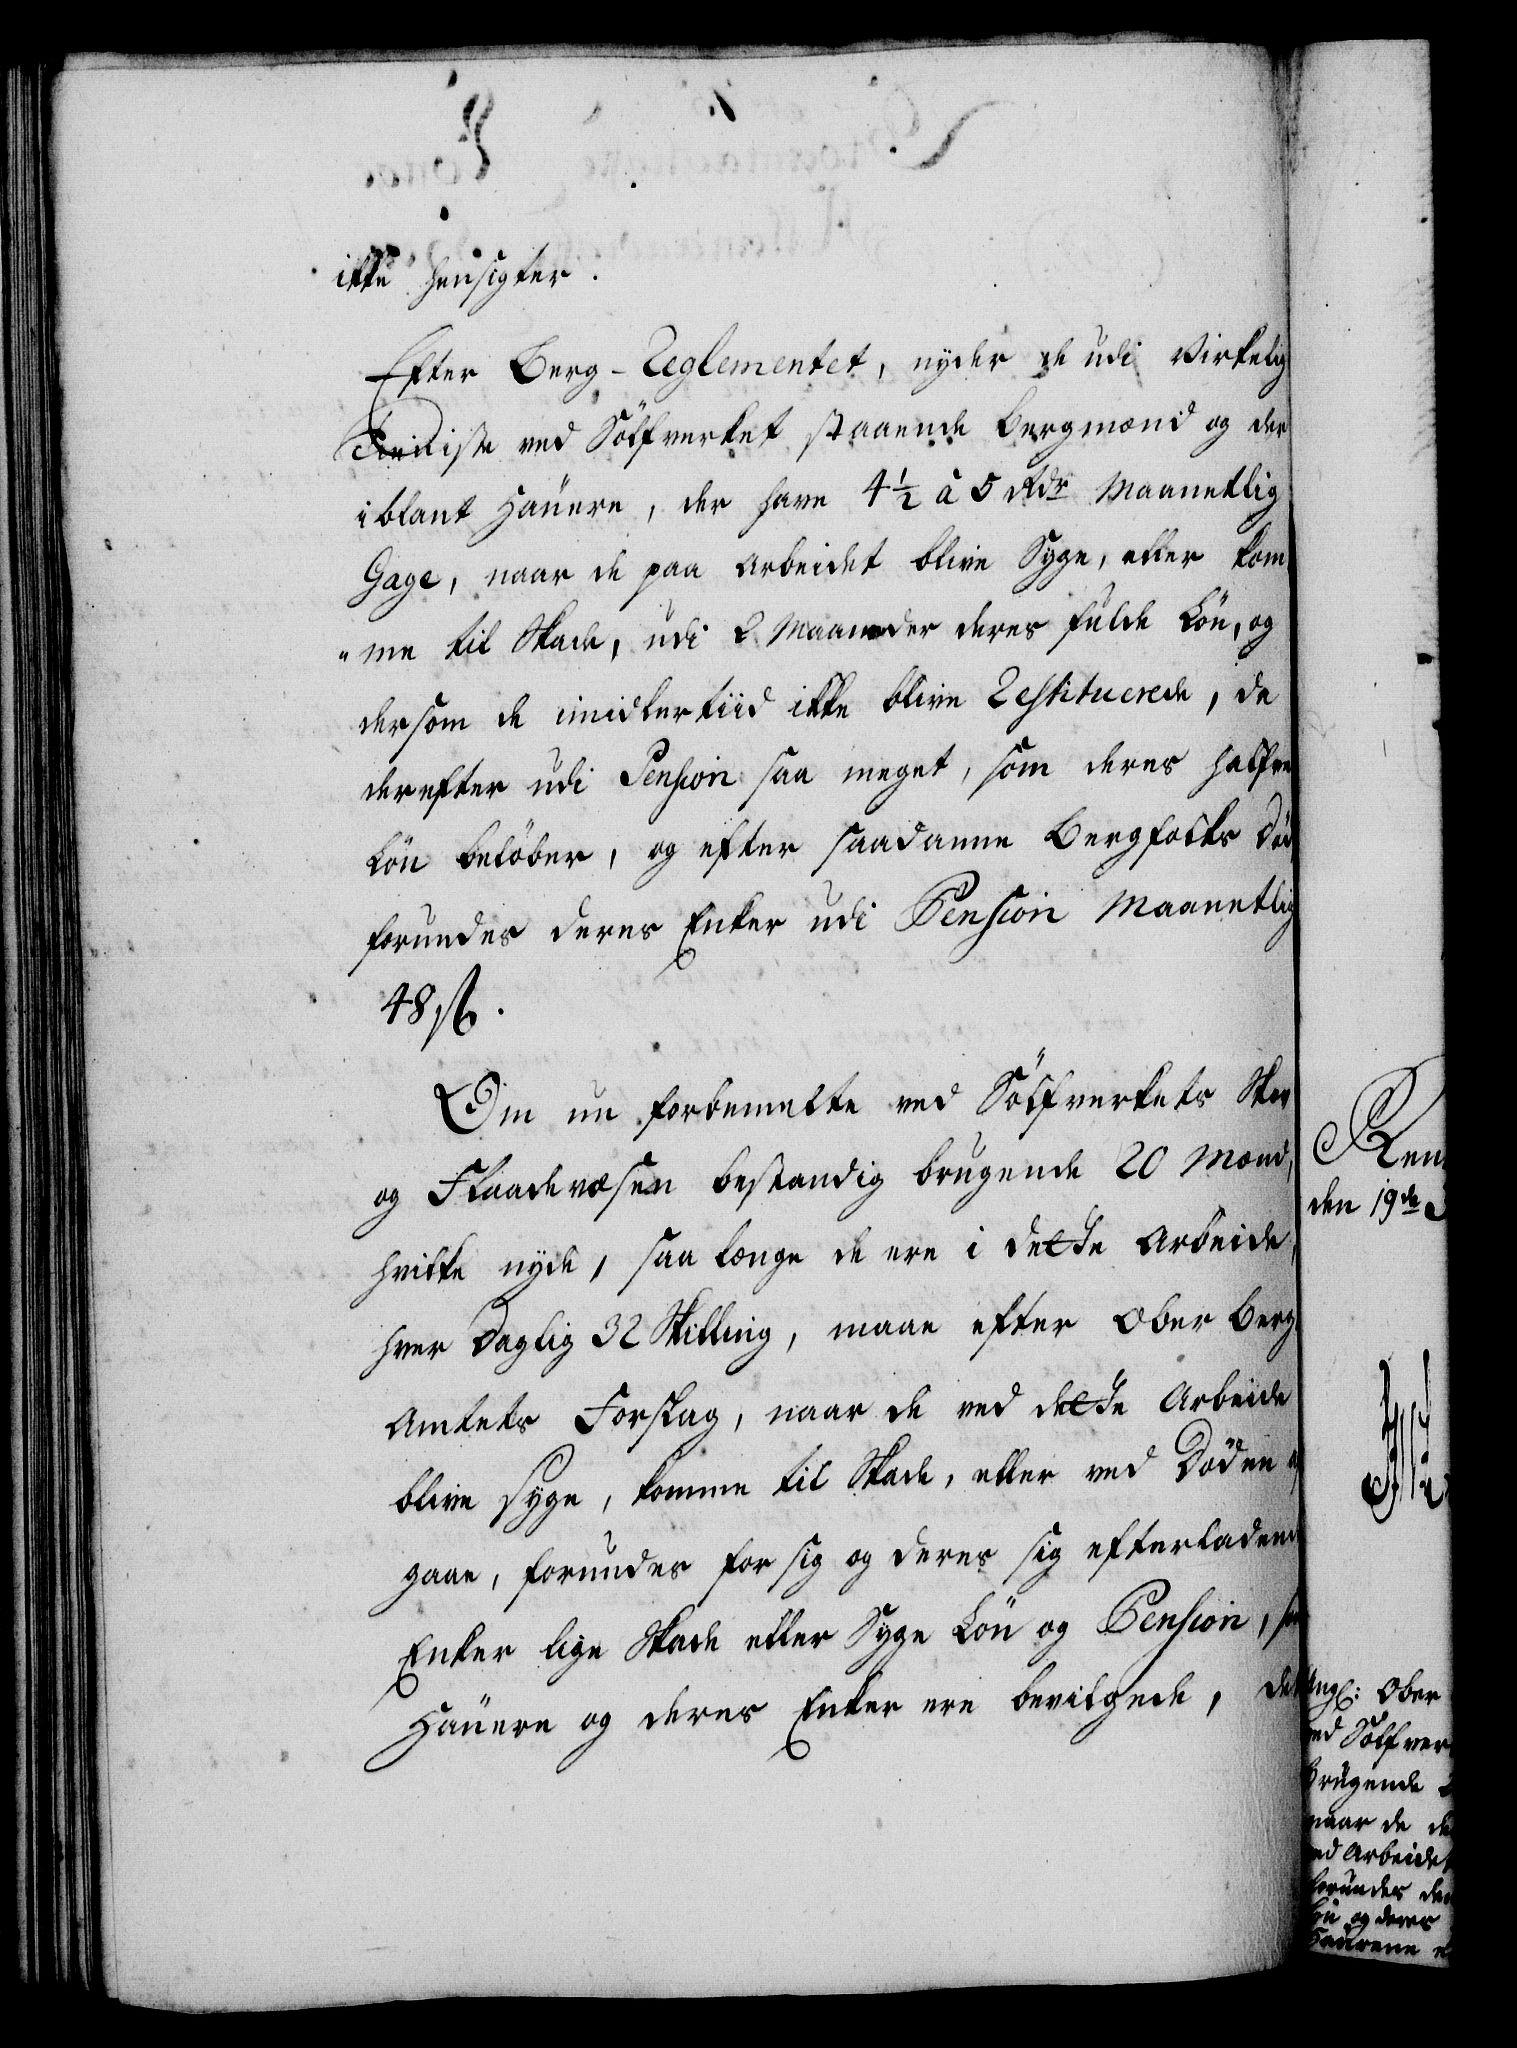 ikke hensigter.
Efter Berg-Reglementet, nyder de udi virkelig
Tieniste ved Sölfverket staaende Bergmænd og der
iblant Hauere, der have 4½ à 5 Rdr Maanetlig
Gage, naar de paa Arbeidet blive Syge, eller kom
"me til Skade, udi 2 Maaneder deres fulde Lön, og
dersom de imidlertiid ikke blive Restituerede, da
derefter udi Pension saa meget, som deres halfve
Lön belöber, og efter saadanne Bergfolks Död
forundes deres Enker udi Pension Maanetlig
48 sk.
Om nu forbemelte ved Sölfverkets Skov
og Flaadevæsen bestandig brugende 20 Mænd,
hvilke nyde, saa længe de ere i dette Arbeide,
hver Daglig 32 Skilling, maae efter Ober Berg
Amtets Forslag, naar de ved dette Arbeide
blive syge, komme til Skade, eller ved Döden
gaae, forundes for sig og deres sig efterladende
Enker lige Skade eller Syge Lön og Pension, som
Hauere og deres Enker ere bevilgede, det
Ren
den 19de
Angl: Ober
ved Sölfver
brugende
naar de
ved Arbeidet
forundes
og deres
Hauerne